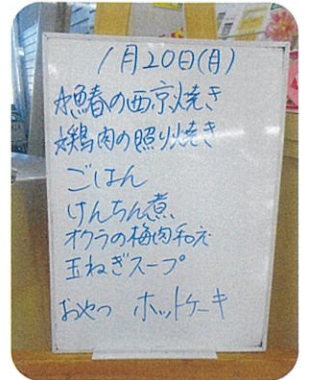 1月20日(月)
*鰆の西京焼き
*鶏肉の照り焼き
ごはん
けんちん煮
オクラの梅肉和え
玉ねぎスープ
おやつ ホットケーキ